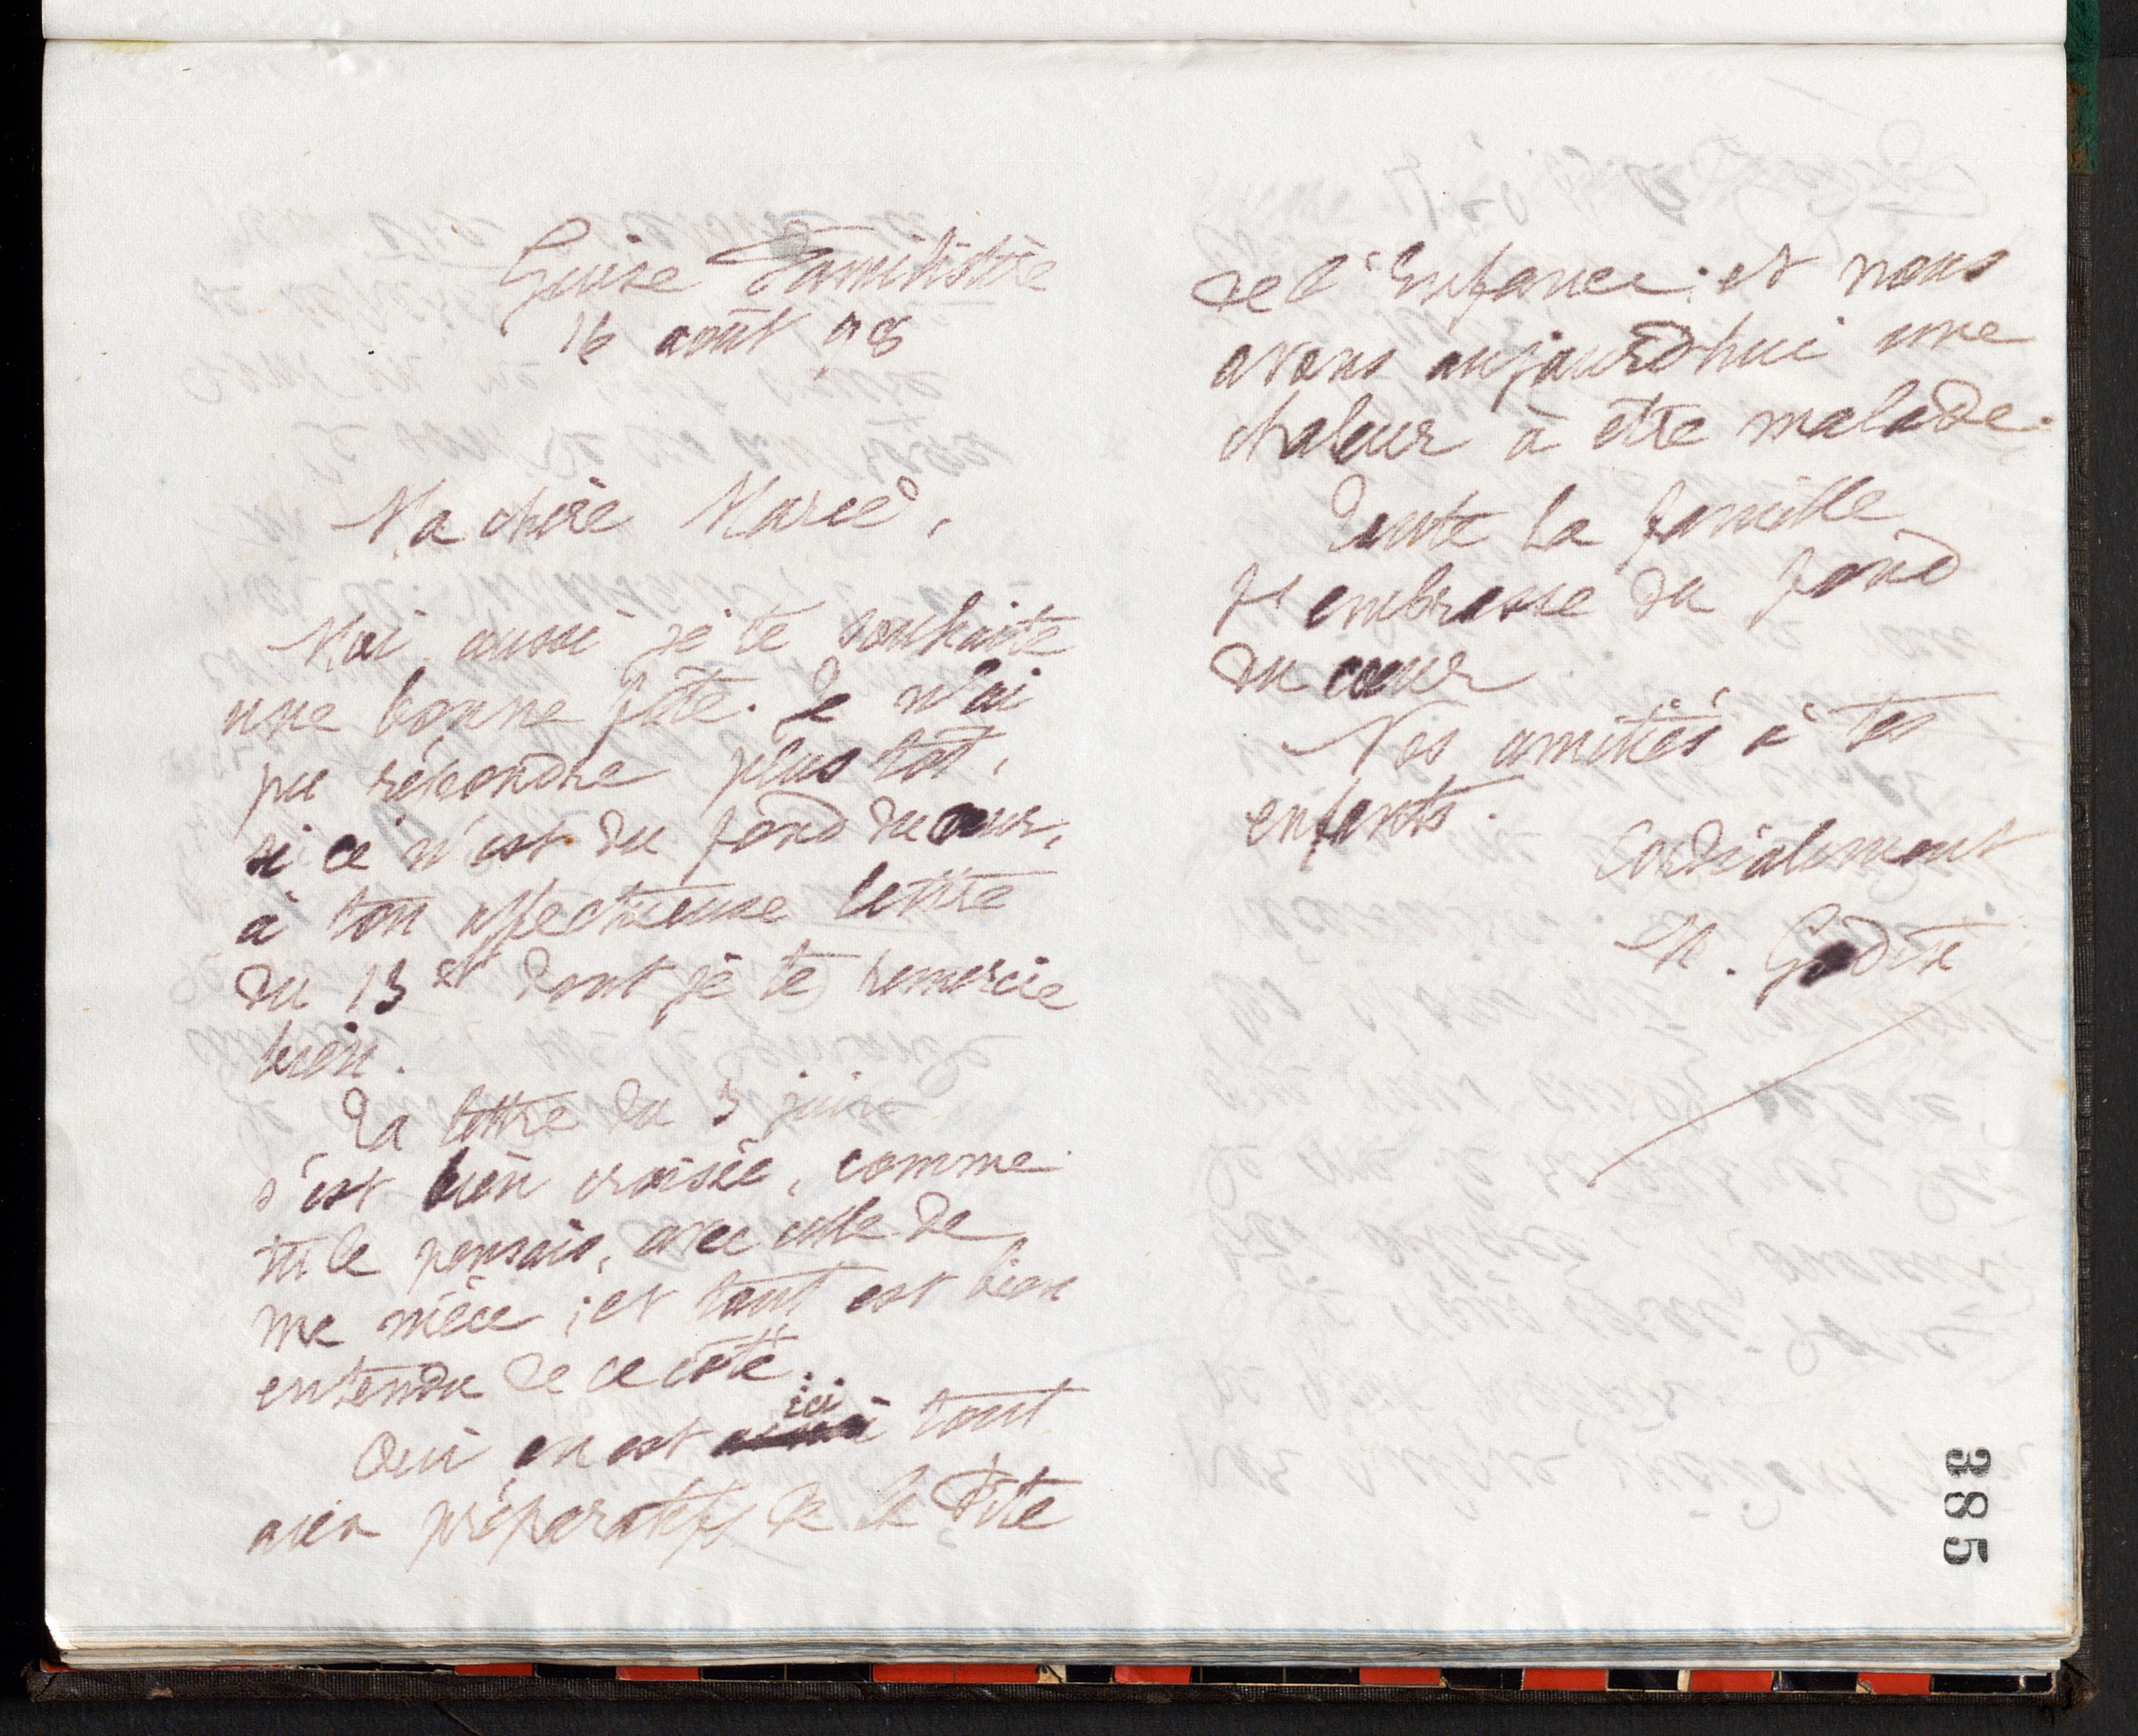 Guise Familistère
16 août 98
Ma chère Marie,
Moi aussi je te souhaite
une bonne fête. Je n'ai
pu répondre plus tôt,
si ce n'est du fond du cœur,
à ton affectueuse lettre
du 13 et dont je te remercie
bien.
Ta lettre du 5 juin
s'est bien croisée, comme
tu le pensais, avec celle de
ma nièce ; et tout est bien
entendu de ce côté.
Oui on est ici tout
aux préparatifs de la Fête
de l'Enfance ; et nous
avons aujourd'hui une
chaleur à être malade.
Toute la famille
t'embrasse du fond
du cœur
Nos amitiés à tes
enfants.
Cordialement
M. Godin
385